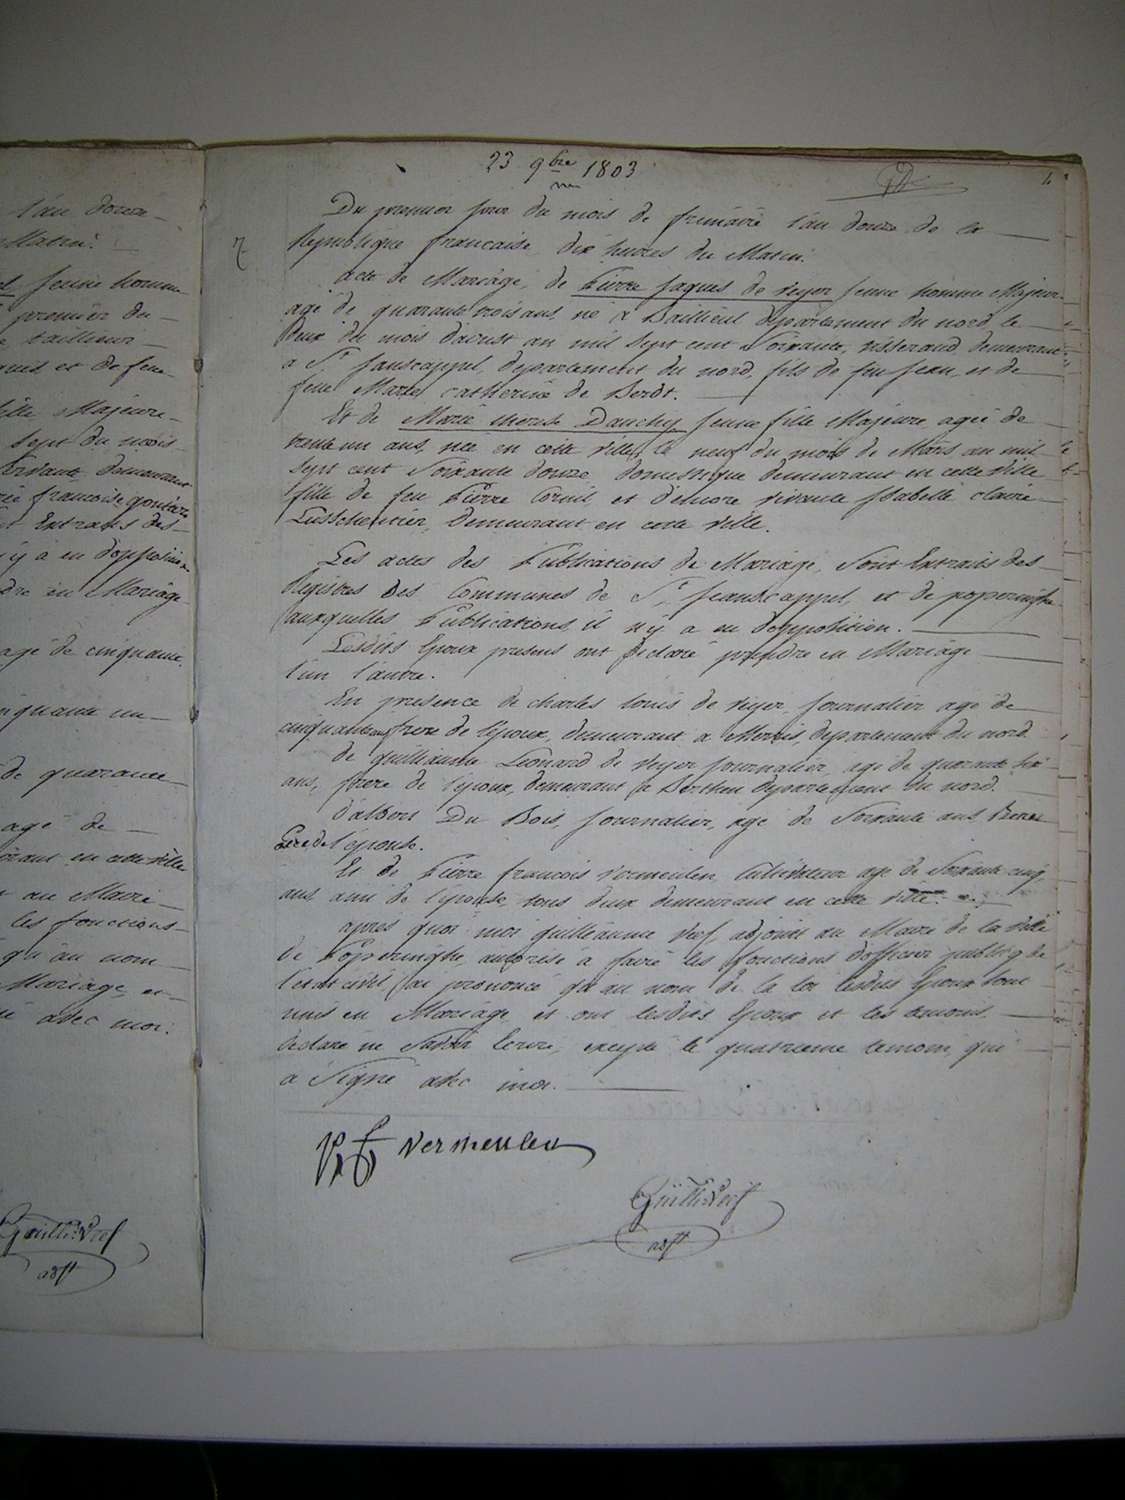 l'an douze
Matin.
jeune homme
premier du
tailleur
et de feue
fille Majeure
Sept du mois
vivante, demeurant
francoise
Extraits des
il n'y a eu d'opposition
prendre en Mariage
agé de cinquante
cinquante un
de quarante
agé de
en cette ville
au Maire
les fonctions
qu'au nom
Mariage, et
avec moi.
Guill. Verf
adjt
23 9bre 1803
7
Du premier jour du mois de frimaire l'an douze de la
République francaise, dix heures du Matin.
acte de Mariage, de Pierre Jaques de veyer jeune homme Majeur
agé de quarante trois ans, né a Bailleul departement du nord le
deux du mois d'aoust an mil sept cent Soixante, tisserand demeurant
a St Janscappel, departement du nord, fils de feu Jean, et de
feue Marie catherine de Berdt.
Et de Marie therese Dauchy jeune fille Majeure, agée de
trente un ans, née en cette ville, le neuf du mois de Mars an mil
Sept cent Soixante douze domestique demeurant en cette ville
fille de feu Pierre Corneil, et d'encore vivante Isabelle claire
demeurant en cette ville.
Les actes des Publications de Mariage, Sont Extraits des
Registres des Communes de St Jeanscappel, et de poperinghe
auxquelles Publications, il n'y a eu d'opposition.
Lesdits Epoux presens ont declaré prendre en Mariage
l'un l'autre.
En presence de charles louis de veyer, journalier agé de
cinquante ans frere de l'epoux, demeurant a Merris, departement du nord
de guilliaume Leonard de veyer journalier, agé de quarante six
ans, frere de l'epoux, demeurant a Berthen departement du nord.
d'albert Du Bois, journalier, agé de Soixante ans Beau
Pere de l'epouse.
Et de Pierre francois Vermeulen, Cultivateur agé de Soixante cinq
ans ami de l'epouse, tous deux demeurant en cette ville.
après quoi moi guilleaume Verf, adjoint au Maire de la ville
de Poperinghe, autorisé a faire les fonctions d'officier publiq de
l'etat civil, j'ai prononcé qu'au nom de la loi lesdits Epoux sont
unis en Mariage, et ont lesdits Epoux et les temoins
declaré ne Savoir Ecrire, excepté le quatrieme temoin, qui
a Signé avec moi.
Vermeulen
Guill. Verf
adjt